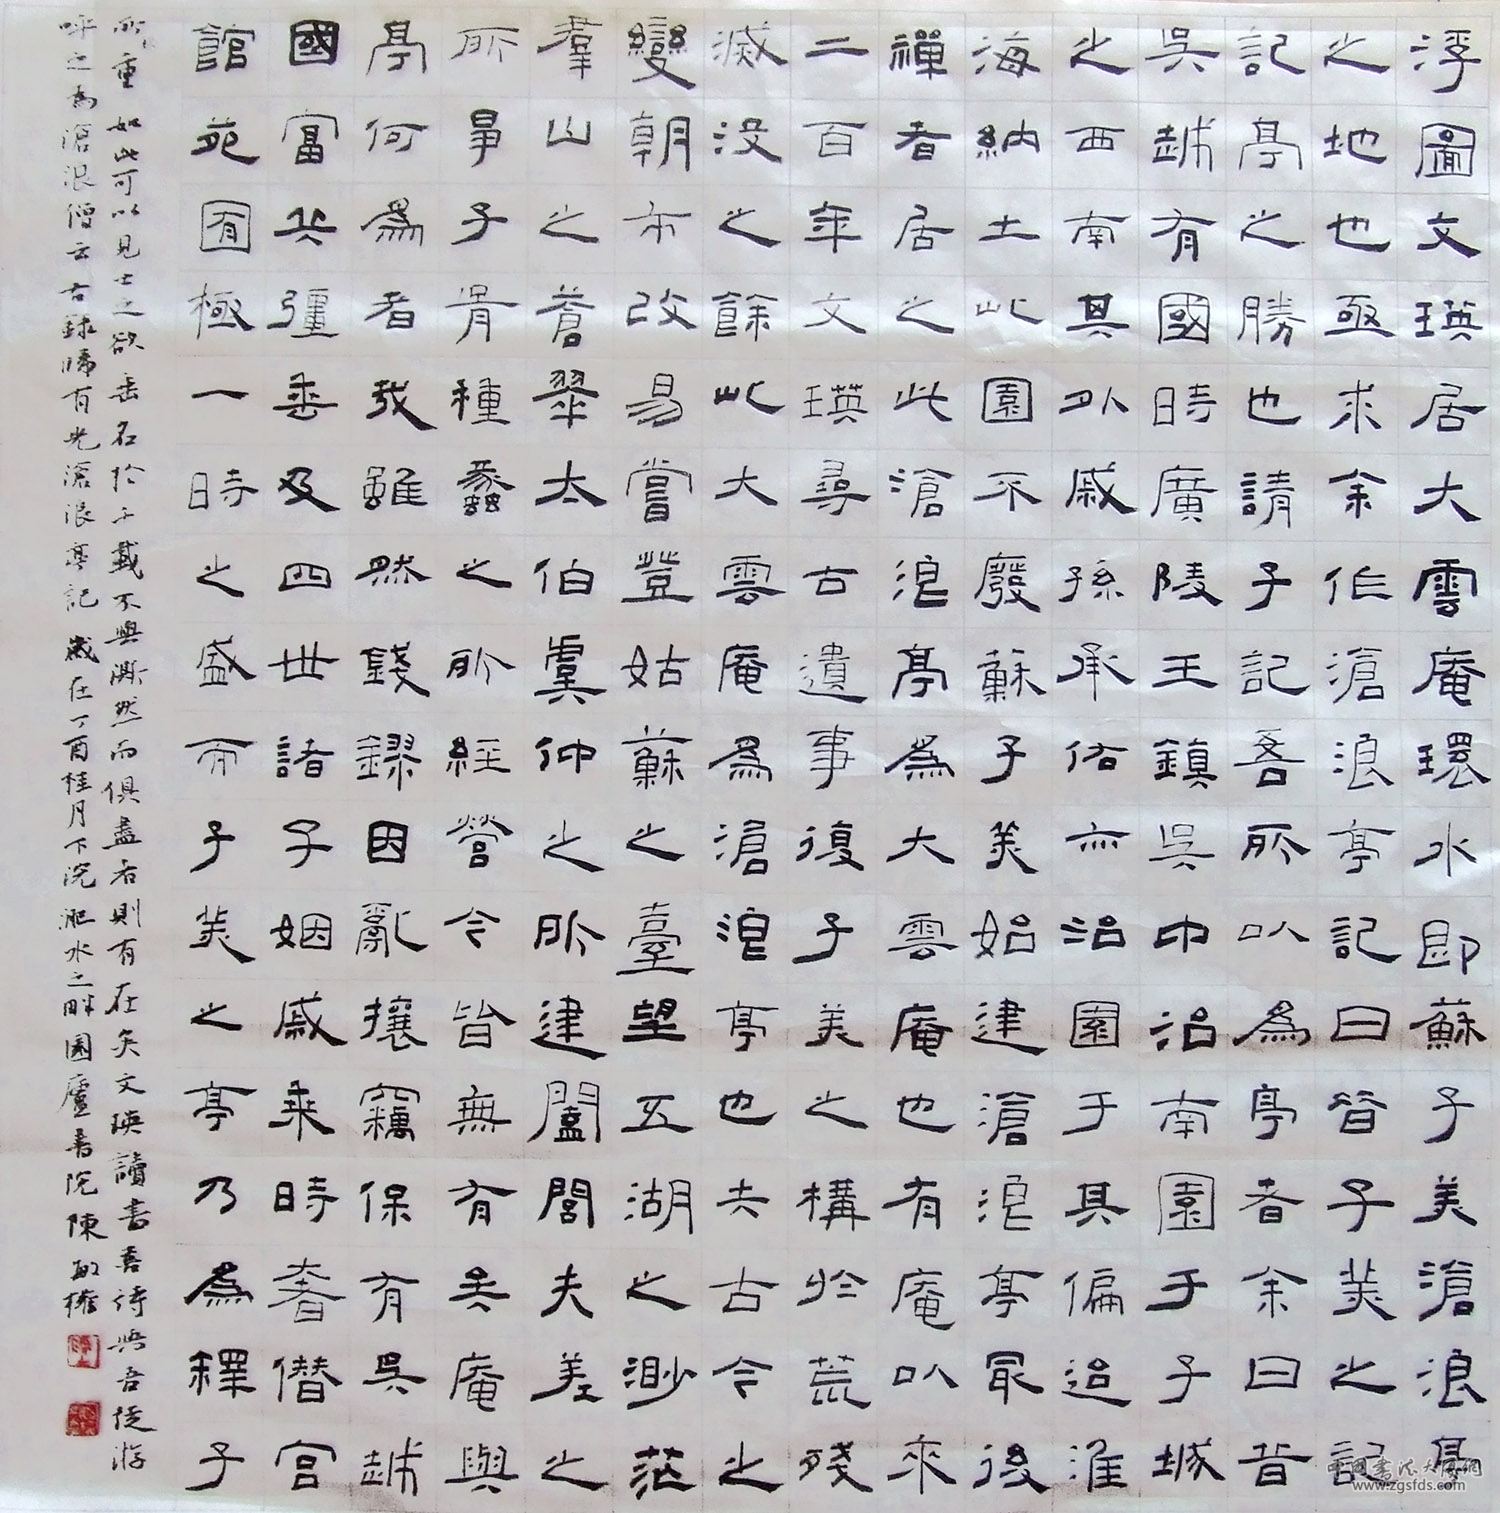 浮圖文瑛居大雲庵環水即蘇子美滄浪亭
之地也亟求余作滄浪亭記曰昔子美之記
記亭之勝也請子記吾所以爲亭者余曰昔
吳越有國時廣陵王鎮吳中治南園于子城
之西南其外戚孫承佑亦治園于其偏迨淮
海納土此園不廢蘇子美始建滄浪亭最後
禪者居之此滄浪亭爲大雲庵也有庵以來
二百年文瑛尋古遺事復子美之構於荒殘
滅沒之餘此大雲庵爲滄浪亭也夫古今之
變朝市改易嘗登姑蘇之臺望五湖之渺茫
羣山之蒼翠太伯虞仲之所建闔閭夫差之
所爭子胥種蠡之所經營今皆無有矣庵與
亭何爲者哉雖然錢鏐因亂攘竊保有吳越
國富兵彊垂及四世諸子姻戚乘時奢僭宮
館苑囿極一時之盛而子美之亭乃爲釋子
所重如此可以見士之欲垂名於千載不與澌然而俱盡者則有在矣文瑛讀書喜詩與吾徒游
呼之為滄浪僧云右錄歸有光滄浪亭記 歲在丁酉桂月下浣淝水之畔園廬書院陳敏
www.zgsfds.com